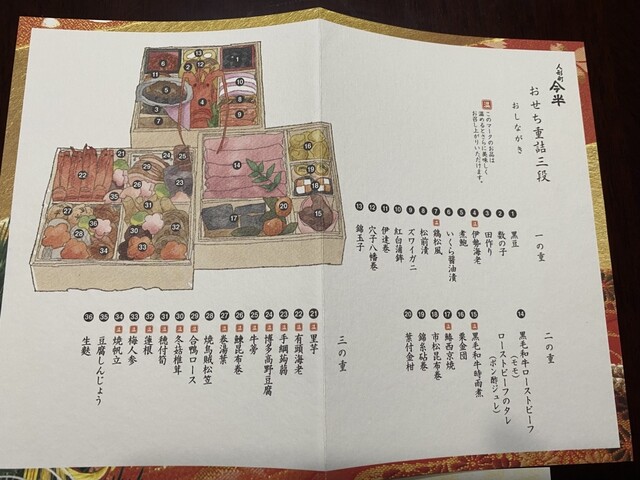 人形町
今半
おせち重詰三段
おしながき
温 このマークのお品は
温めるとさらに美味しく
お召し上がりいただけます。
一の重
1 黒豆
2 数の子
3 田作り
4 温 伊勢海老
5 煮鮑
6 いくら醤油漬
7 温 鶏松風
8 松前漬
9 ズワイガニ
10 紅白蒲鉾
11 伊達巻
12 穴子八幡巻
13 錦玉子
二の重
14 黒毛和牛ローストビーフ
(モモ)
ローストビーフのタレ
(ポン酢ジュレ)
15 温 黒毛和牛時雨煮
16 栗金団
17 温 鰆西京焼
18 市松昆布巻
19 錦糸砧巻
20 葉付金柑
三の重
21 温 里芋
22 温 有頭海老
23 温 手綱蒟蒻
24 温 博多高野豆腐
25 温 牛蒡
26 温 鰊昆布巻
27 温 巻湯葉
28 温 合鴨ロース
29 焼烏賊松笠
30 温 冬菇椎茸
31 温 穂付筍
32 温 蓮根
33 温 梅人参
34 温 焼帆立
35 豆腐しんじょう
36 生麩